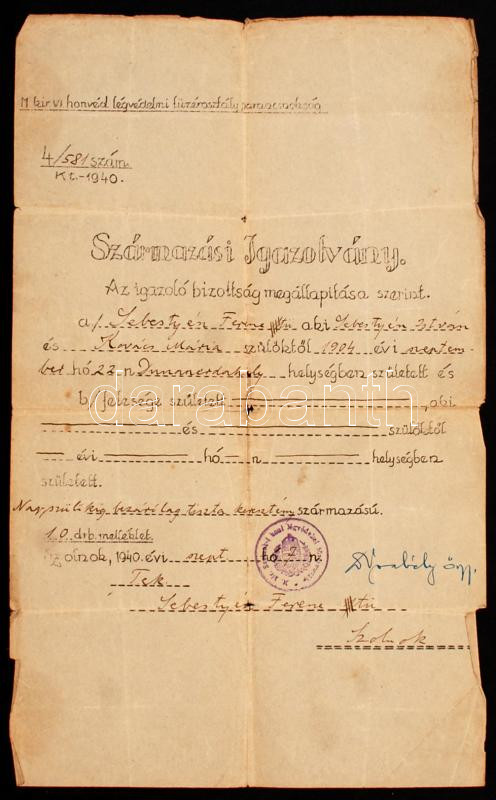 M. kir. VI honvéd légvédelmi tüzérosztály parancsnokság
4/581 szám.
Kt.-1940.
Származási Igazolvány.
Az igazoló bizottság megállapitása szerint.
a/ Sebestyén Ferenc aki Sebestyén István
és Kovács Mária szülőktől 1904 évi szeptem-
ber hó 22-n helységben született és
b/ felesége született , aki
és szülőktől
évi hó n helységben
született.
Nagyszülőkig bezárólag tiszta keresztény származású.
10. drb. melléklet.
Szolnok, 1940. évi szept hó 2 n.
Tek
Sebestyén Ferenc
Szolnok
darabanth